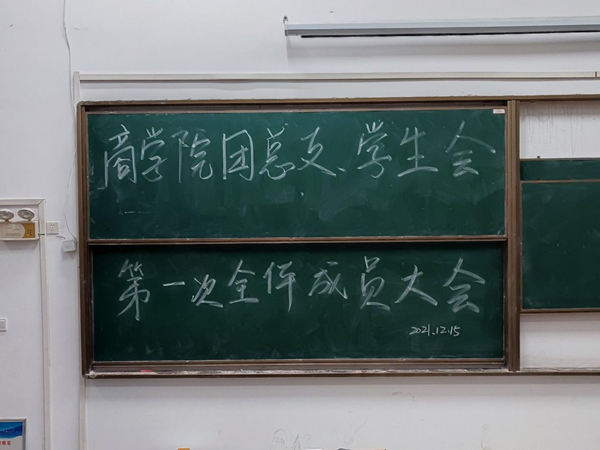 商学院团总支、学生会
第一次全体成员大会
2021.12.15